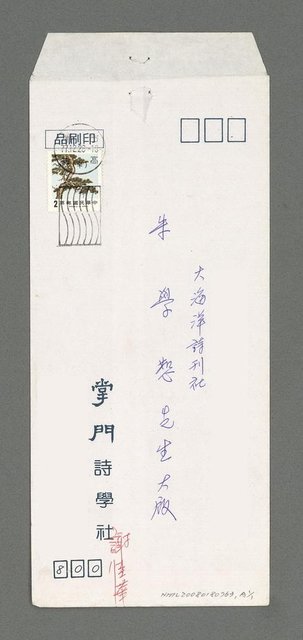 印刷品
77.12.29-15
高
中華民國郵票
2
大海洋詩刊社
朱學恕先生大啟
掌門詩學社
謝佳華
800
NMTL20080180763